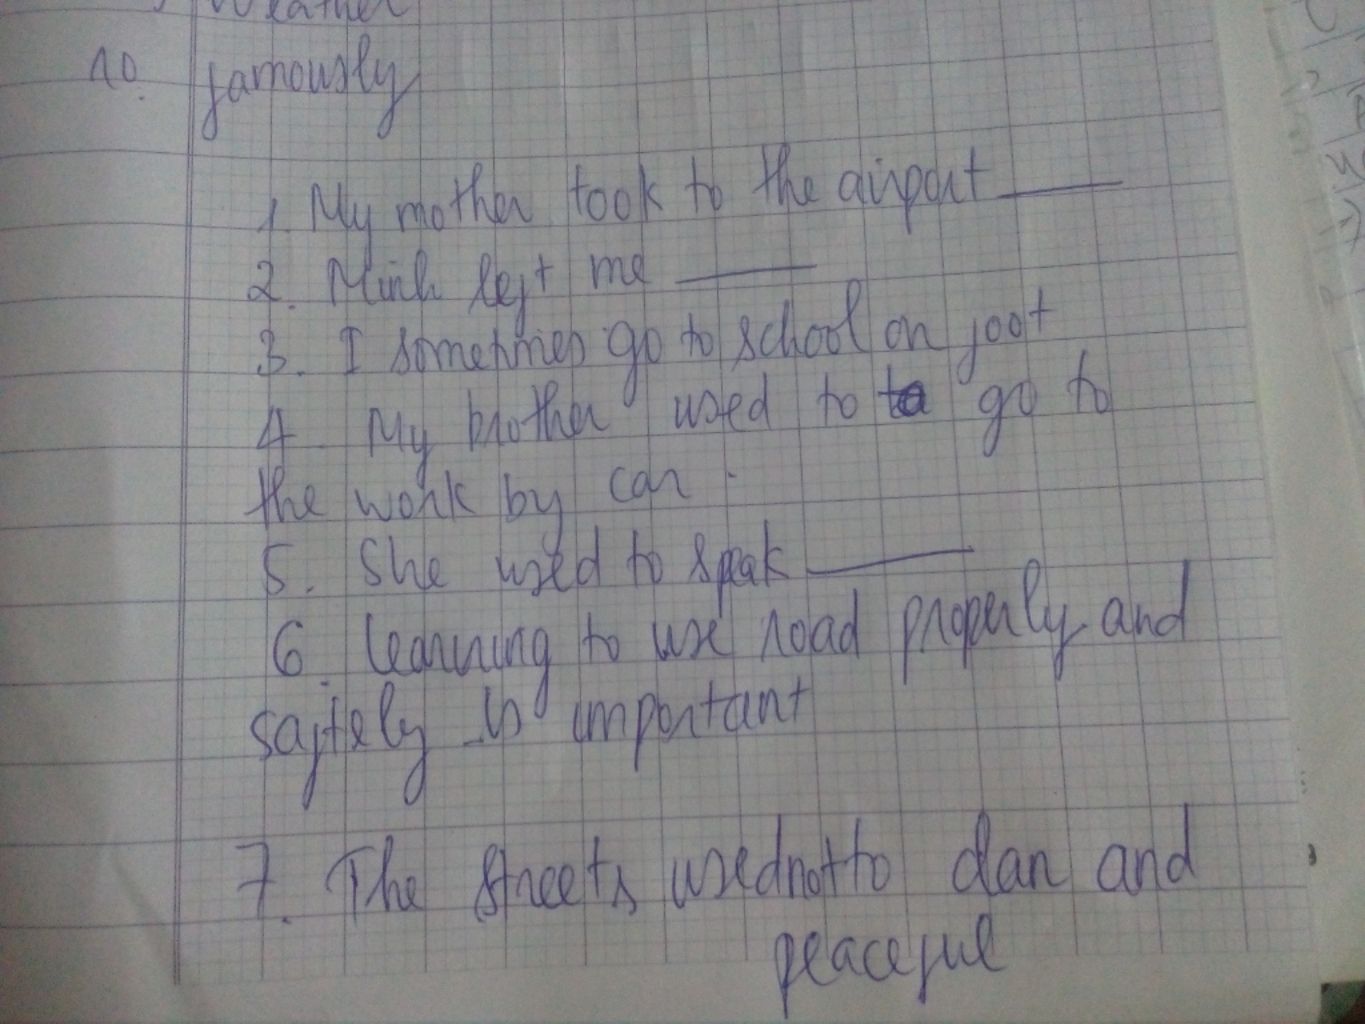 Weather
10. famously
1. My mother took to the airport
2. Minh left me
3. I sometimes go to school on foot
4. My brother used to to go to
the work by car.
5. She used to speak
6. learning to use road properly and
saftely is important
7. The streets usednotto clean and
peaceful